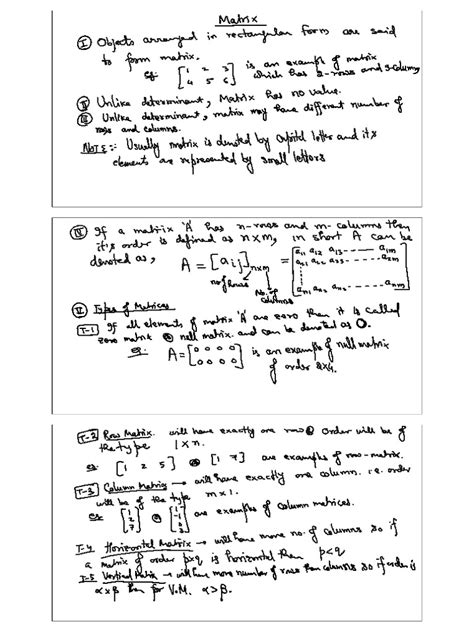 Matrix
I Objects arranged in rectangular form are said
to form matrix.
eg: [1 2 3 is an example of matrix
4 5 6] which has 2-rows and 3-columns
II Unlike determinant, Matrix has no value.
III Unlike determinant, matrix may have different number of
rows and columns.
NOTE:- Usually matrix is denoted by capital letter and it's
elements are represented by small letters
IV If a matrix 'A' has n-rows and m-columns then
it's order is defined as n×m, in short A can be
denoted as, A = [aij]n×m = [a11 a12 a13 ---- a1m
a21 a22 a23 ---- a2m
no. of rows No. of columns
an1 an2 an3 ---- anm]
V Types of Matrices
T-1 If all elements of matrix 'A' are zero then it is called
zero matrix or null matrix. and can be denoted as O.
eg: A = [0 0 0 0 is an example of null matrix
0 0 0 0] of order 2×4.
T-2 Row Matrix. will have exactly one row or order will be of
the type 1×n.
eg: [1 2 5] or [1 7] are examples of row-matrix.
T-3 Column Matrix → will have exactly one column. i.e. order
will be of the type m×1.
eg: are examples of column matrices.
T-4 Horizontal Matrix → will have more no. of columns so if
a matrix of order p×q is horizontal then p<q
T-5 Vertical Matrix → will have more number of rows than columns so if order is
α×β then for V.M. α>β.